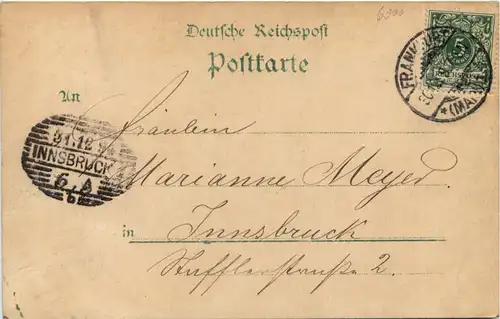 6000
Deutsche Reichspost
Postkarte
5
FRANKFURT
* (MAIN)
An
31.12 9
INNSBRUCK
6. A
b
Fräulein
Marianne Meyer
in Innsbruck
Stafflerstraße 2.